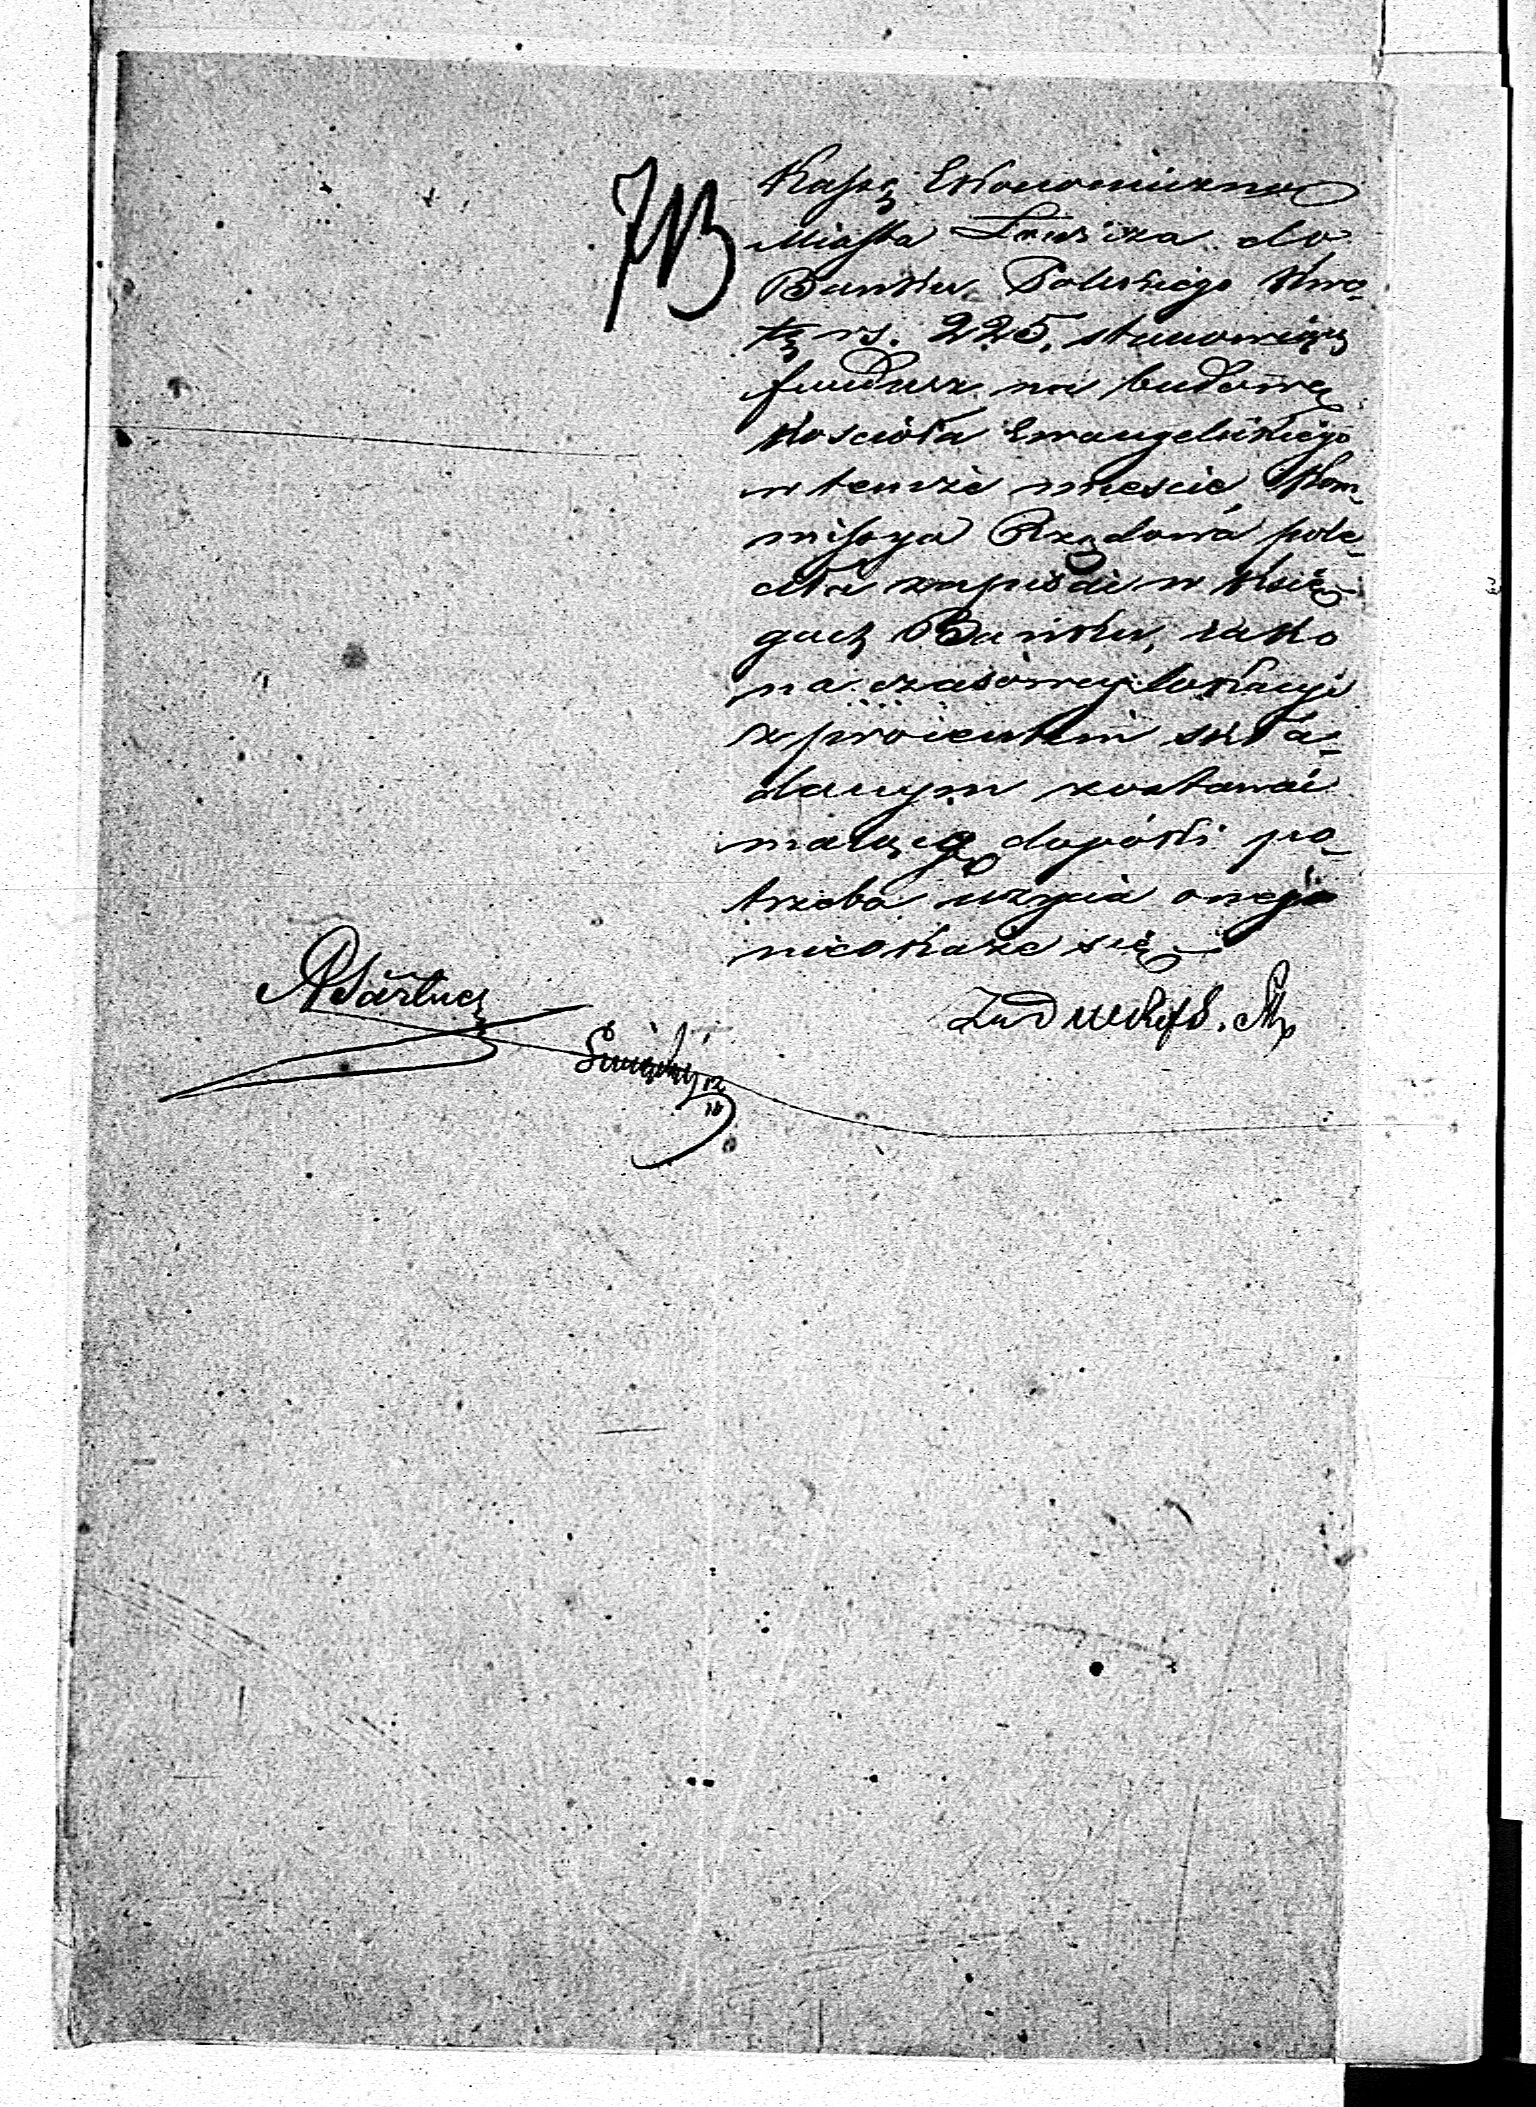 Kassę Ekonomiczną
Miasta do
Banku Polskiego kwo-
tę rs. 225. stanowiącą
fundusz na budowę
kościoła Ewangelickiego
w temże mieście Kom-
missya Rządowa pole-
ciła zapisać w księ-
gach Banku, iako
na czasowey lokacyi
z procentem skła-
danym zostawać
maiącą dopóki po-
trzeba użycia onego
nieokaże się